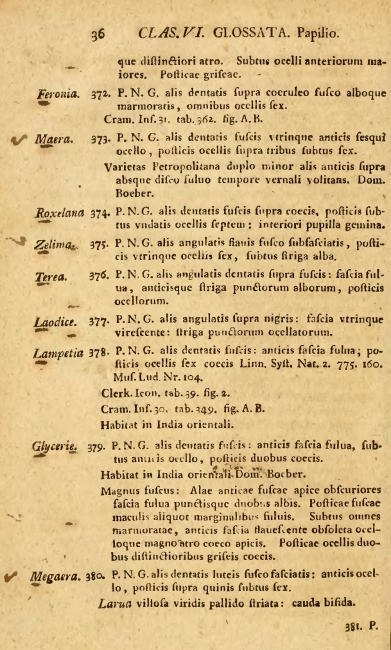 36 CLAS. VI. GLOSSATA. Papilio.
que distinctiori atro. Subtus ocelli anteriorum ma-
iores. Posticae griseae.
Feronia. 372. P. N. G. alis dentatis supra coeruleo fusco alboque
marmoratis, omnibus ocellis sex.
Cram. Inf. 31. tab. 362. fig. A. B.
Maera. 373. P. N. G. alis dentatis fuscis vtrinque anticis sesqui
ocello, posticis ocellis supra tribus subtus sex.
Varietas Petropolitana duplo minor alis anticis supra
absque disco fuluo tempore vernali volitans. Dom.
Boeber.
Roxelana 374. P. N. G. alis dentatis fuscis supra coecis, posticis sub-
tus vndatis ocellis septem: interiori pupilla gemina.
Zelima. 375. P. N. G. alis angulatis flauis fusco subfasciatis, posti-
cis vtrinque ocellis sex, subtus striga alba.
Terea. 376. P. N. G. alis angulatis dentatis supra fuscis: fascia ful-
ua, anticisque striga punctorum alborum, posticis
ocellorum.
Laodice. 377. P. N. G. alis angulatis supra nigris: fascia vtrinque
virescente: striga punctorum ocellatorum.
Lampetia 378. P. N. G. alis dentatis fuscis: anticis fascia fulua; po-
sticis ocellis sex coecis Linn. Syst. Nat. 2. 775. 160.
Mus. Lud. Nr. 104.
Clerk. Icon. tab. 39. fig. 2.
Cram. Inf. 30. tab. 349. fig. A. B.
Habitat in India orientali.
Glycerie. 379. P. N. G. alis dentatis fuscis: anticis fascia fulua, sub-
tus annuis ocello, posticis duobus coecis.
Habitat in India orientali. Dom. Boeber.
Magnus fuscus: Alae anticae fuscae apice obscuriores
fascia fulua punctisque duobus albis. Posticae fuscae
maculis aliquot marginalibus fuluis. Subtus omnes
marmoratae, anticis fascia flauescente obsoleta ocel-
loque magno atro coeco apicis. Posticis ocellis duo-
bus distinctioribus griseis coecis.
Megaera. 380. P. N. G. alis dentatis luteis fusco fasciatis: anticis ocel-
lo, posticis supra quinis subtus sex.
Larua villosa viridis pallido striata: cauda bifida.
381. P.